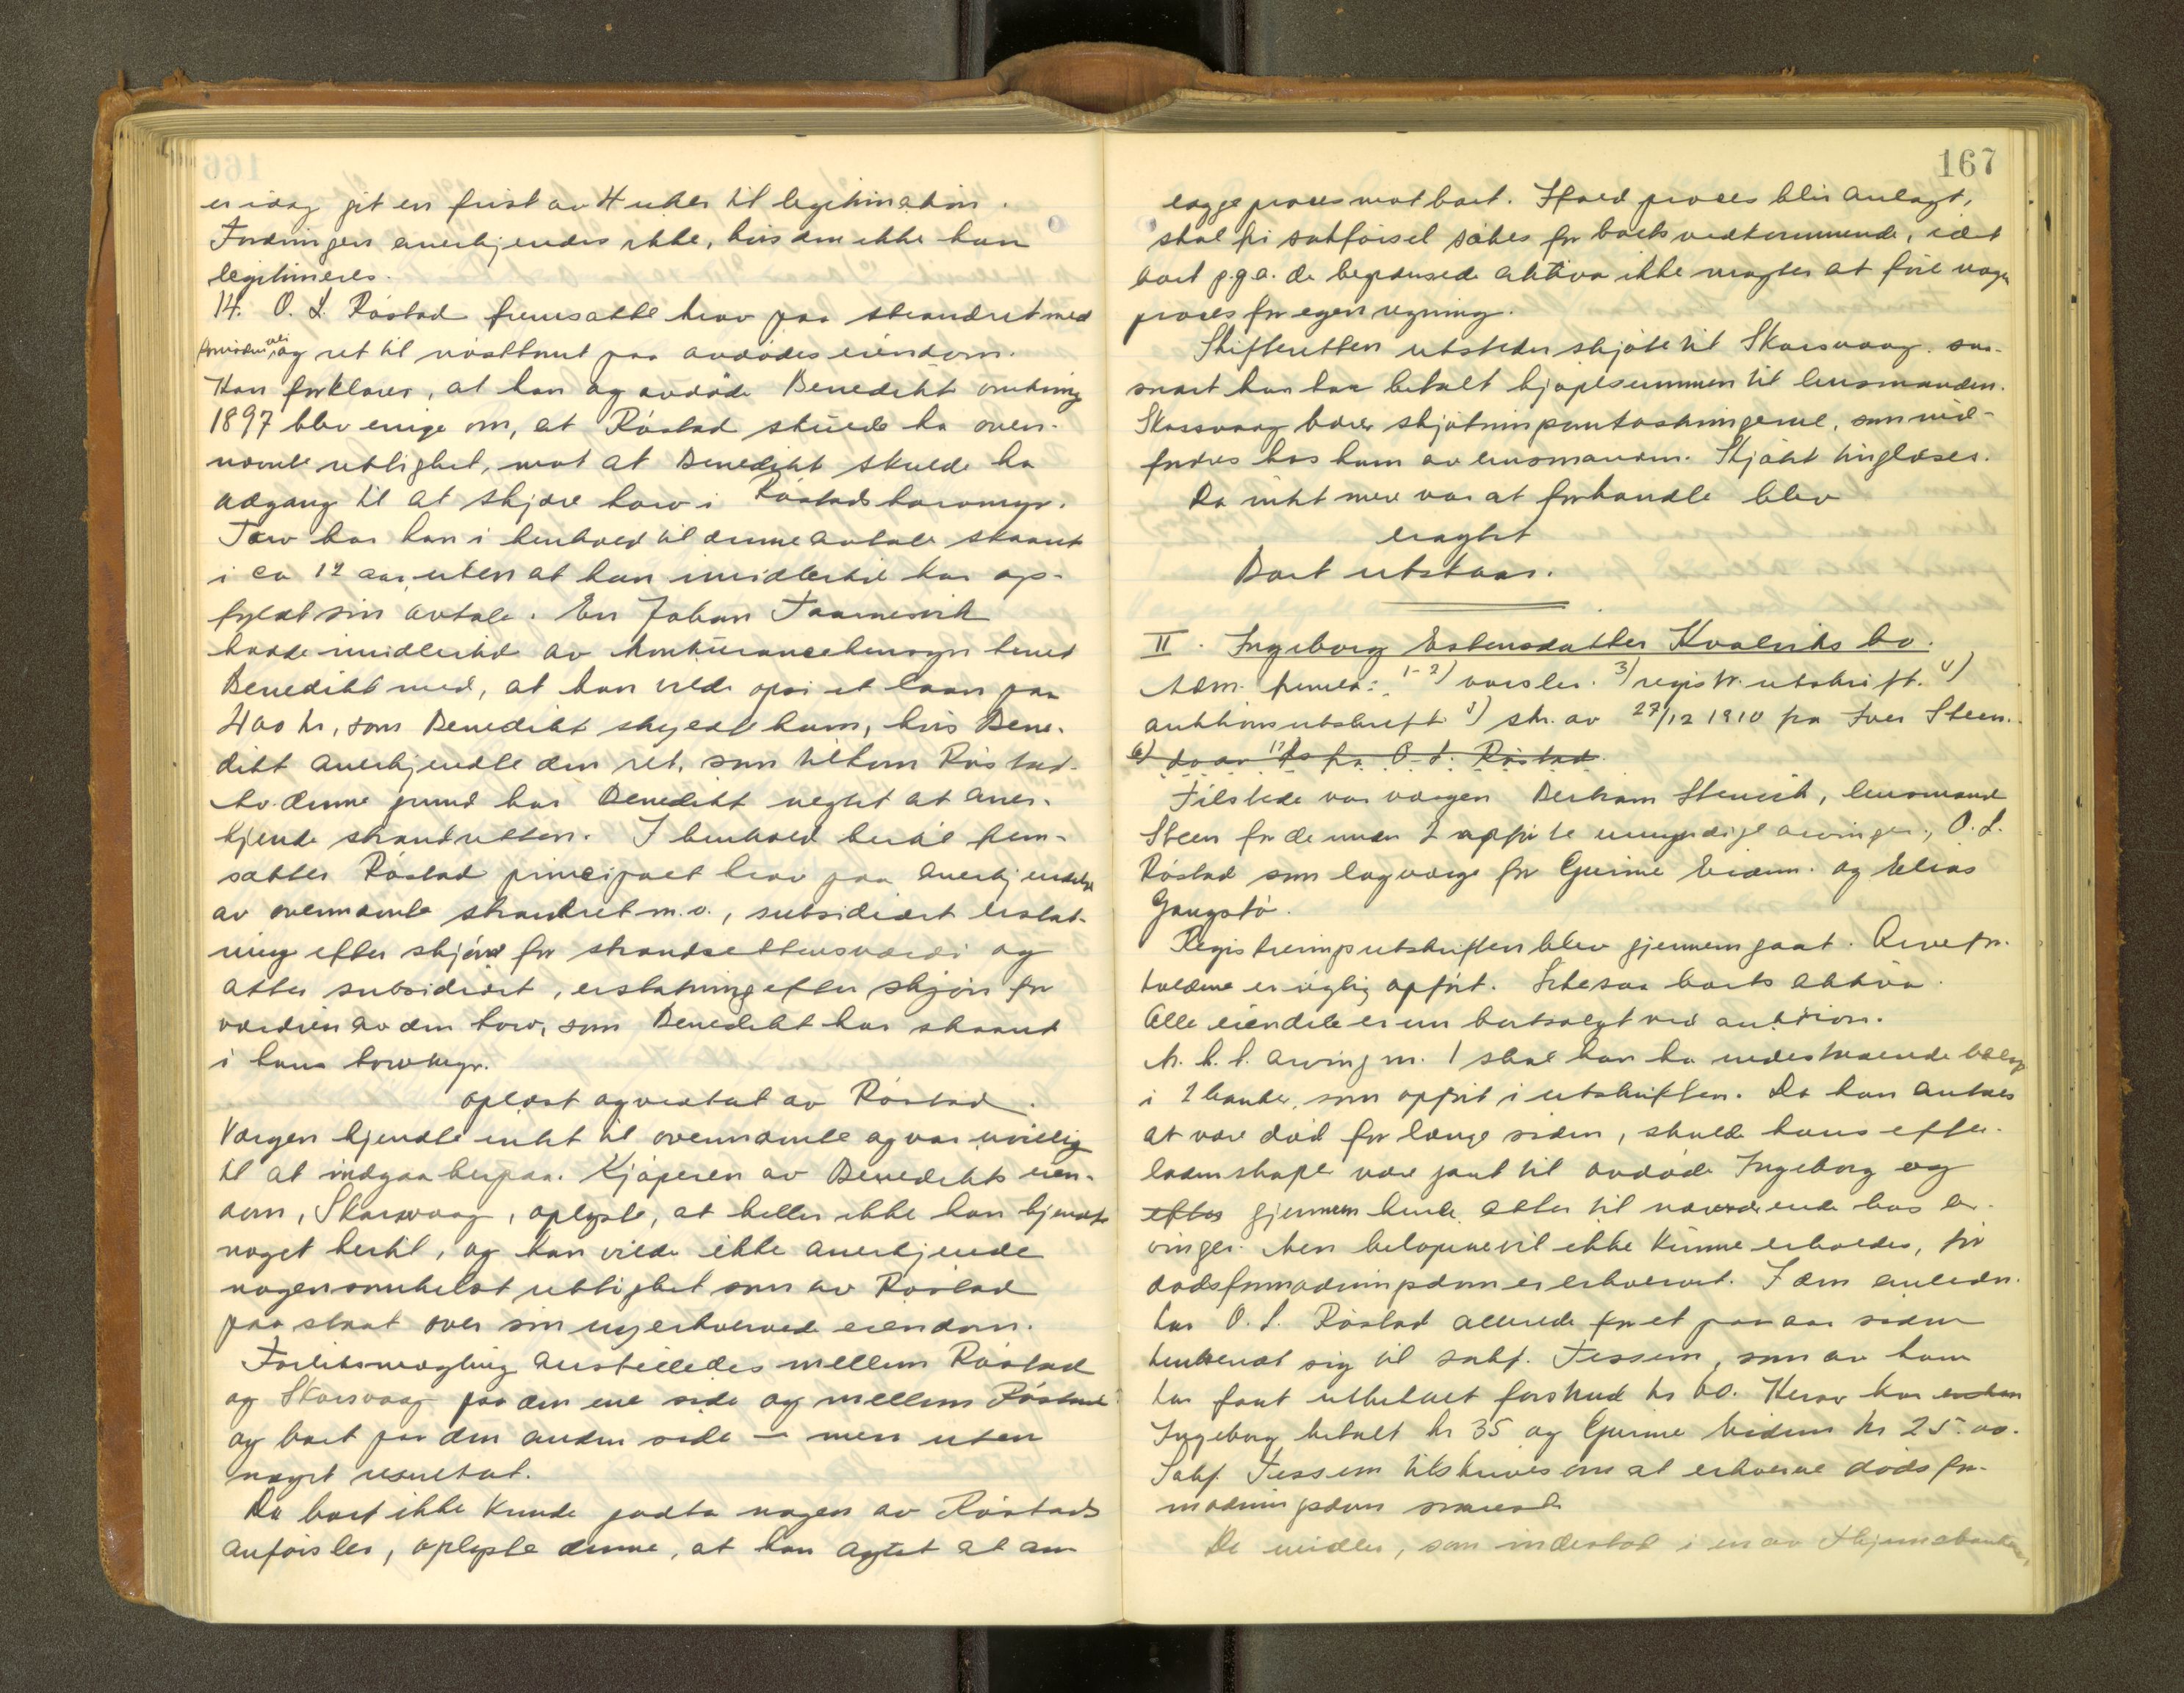 166
er idag git en frist av 4 uker til legitimation.
Fordringen anerkjendes ikke, hvis den ikke kan
legitimeres.
14. O. L. Røstad fremsatte krav paa strandret med
og ret til nøsttomt paa avdødes eiendom.
Han forklarer, at han og avdøde Benedikt omkring
1897 blev enige om, at Røstad skulde ha oven-
nævnte rettighet, mot at Benedikt skulde ha
adgang til at skjære torv i Røstads torvmyr.
Torv har han i henhold til denne avtale skaaret
i ca 12 aar uten at han imidlertid har op-
fyldt sin avtale. En Johan Taarnesvik
hadde imidlertid av konkurancehensyn truet
Benedikt med, at han vilde opsi et laan paa
400 kr, som Benedikt skyldte ham, hvis Bene-
dikt anerkjendte den ret, som tilkom Røstad.
Av denne grund har Benedikt negtet at aner-
kjende strandretten. I henhold hertil frem-
sætter Røstad principalt krav paa anerkjendelse
av ovennævnte strandret m.v., subsidiært erstat-
ning efter skjøn for strandrettens værdi og
atter subsidiært, erstatning efter skjøn for
værdien av den torv, som Benedikt har skaaret
i hans torvmyr.
oplæst og vedtat av Røstad.
Værgen kjendte intet til ovennævnte og var uvillig
til at indgaa herpaa. Kjøperen av Benedikts eien-
dom, Skarsvaag, oplyste, at heller ikke han kjendte
noget hertil, og han vilde ikke anerkjende
nogensomhelst rettighet som av Røstad
paastaat over sin nyerhvervede eiendom.
Forliksmægling anstilledes mellem Røstad
og Skarsvaag paa den ene side og mellem Røstad
og boet paa den anden side – men uten
noget resultat.
Da boet ikke kunde godta nogen av Røstads
anførsler, oplyste denne, at han agtet at an-
167
lægge proces mot boet. Ifald proces blir anlagt,
skal fri sakførsel søkes for boets vedkommende, idet
boet p.g.a. de begrænsede aktiva ikke magter at føre nogen
proces for egen regning.
Skifteretten utsteder skjøte til Skarsvaag saa-
snart han har betalt kjøpesummen til lensmanden.
Skarsvaag bærer skjøtningsomkostningerne, som ind-
fordres hos ham av lensmanden. Skjøtet tinglæses.
Da intet mere var at forhandle blev
eragtet
Boet utstaar.
II. Ingeborg Estensdatter Kvalviks bo.
Adm. fremla: 1-2) varsler. 3) registr. utskrift. 4)
auktionsutskrift 5) skr. av 27/12 1910 fra Iver Steen.
6) do av 17/ ds fra O. L. Røstad.
Tilstede var værgen Bertram Stenvik, lensmand
Steen for de under 2 opførte umyndige arvinger, O. L.
Røstad som lagværge for Gurine Eidem og Elias
Gangstø.
Registreringsutskriften blev gjennemgaat. Arvefor-
holdene er rigtig opført. Likesaa boets aktiva.
Alle eiendele er nu bortsolgt ved auktion.
M. h. t. arving nr. 1 skal han ha indestaaende beløp
i 2 banker, som opført i utskriften. Da han antaes
at være død for længe siden, skulde hans efter-
ladenskaper være gaat til avdøde Ingeborg og
efter gjennem hende atter til nærværende bos ar-
vinger. Men beløpene vil ikke kunne erholdes, før
dødsformodningsdom er erhvervet. I den anledn.
har O. L. Røstad allerede for et par aar siden
henvendt sig til sakf. Tessem, som av ham
har faat utbetalt forskud kr 60. Herav har
Ingeborg betalt kr 35 og Gurine Eidem kr 25.00.
Sakf. Tessem tilskrives om at erhverve dødsfor-
modningsdom snarest.
De midler, som indestod i en av Hjemmebankene,